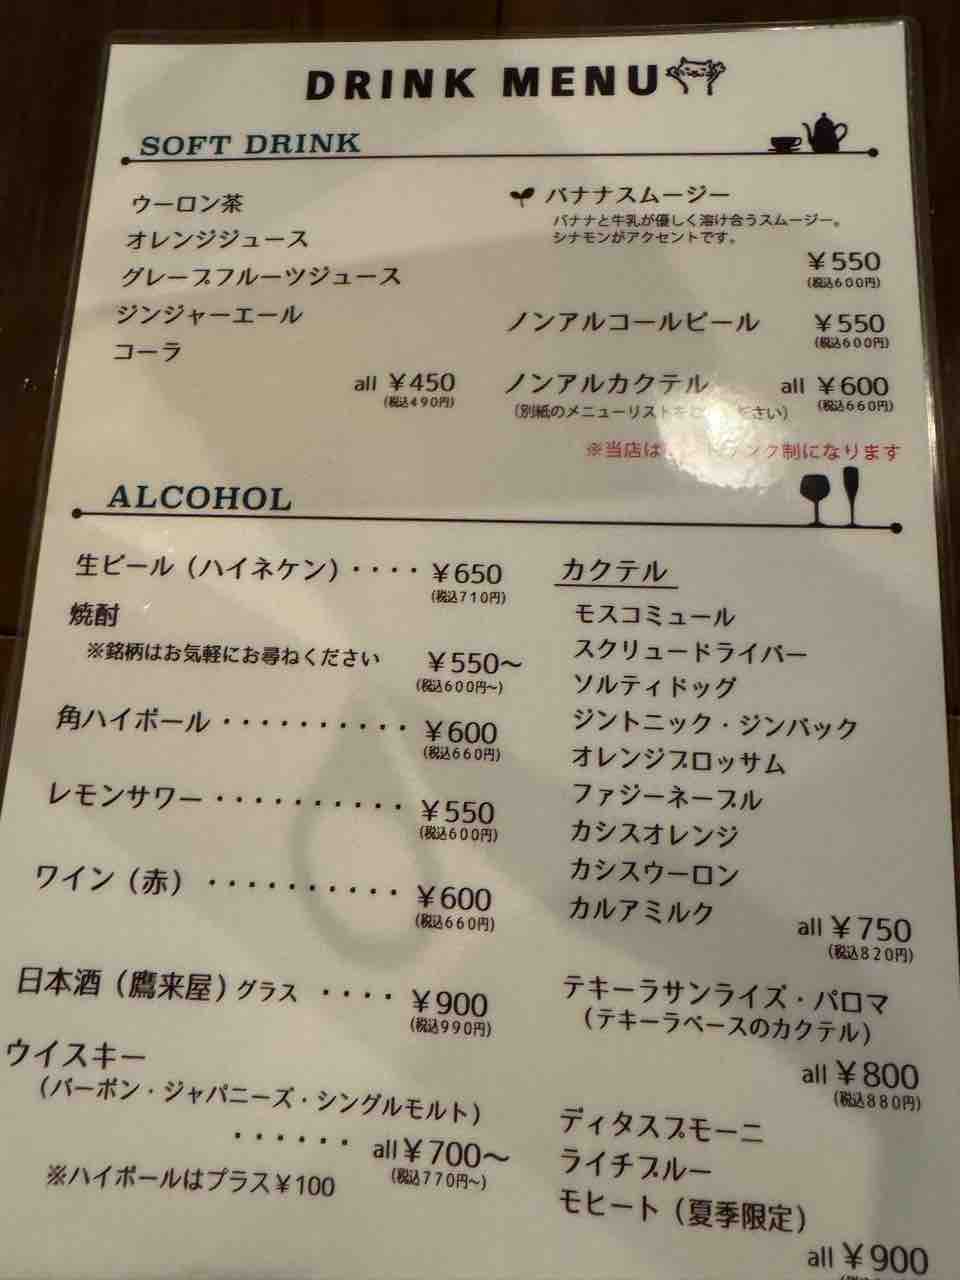 DRINK MENU
SOFT DRINK
ウーロン茶
オレンジジュース
グレープフルーツジュース
ジンジャーエール
コーラ
all ¥450
(税込490円)
バナナスムージー
バナナと牛乳が優しく溶け合うスムージー。
シナモンがアクセントです。
¥550
(税込600円)
ノンアルコールビール ¥550
(税込600円)
ノンアルカクテル all ¥600
(別紙のメニューリストを ください) (税込660円)
※当店は ンク制になります
ALCOHOL
生ビール（ハイネケン）・・・・ ¥650
(税込710円)
焼酎
※銘柄はお気軽にお尋ねください ¥550～
(税込600円～)
角ハイボール・・・・・・・・・・ ¥600
(税込660円)
レモンサワー・・・・・・・・・・ ¥550
(税込600円)
ワイン（赤）・・・・・・・・・・ ¥600
(税込660円)
日本酒（鷹来屋）グラス ・・・・ ¥900
(税込990円)
ウイスキー
（バーボン・ジャパニーズ・シングルモルト）
・・・・・・ all ¥700～
(税込770円～)
※ハイボールはプラス¥100
カクテル
モスコミュール
スクリュードライバー
ソルティドッグ
ジントニック・ジンバック
オレンジブロッサム
ファジーネーブル
カシスオレンジ
カシスウーロン
カルアミルク
all ¥750
(税込820円)
テキーラサンライズ・パロマ
（テキーラベースのカクテル）
all ¥800
(税込880円)
ディタスプモーニ
ライチブルー
モヒート（夏季限定）
all ¥900